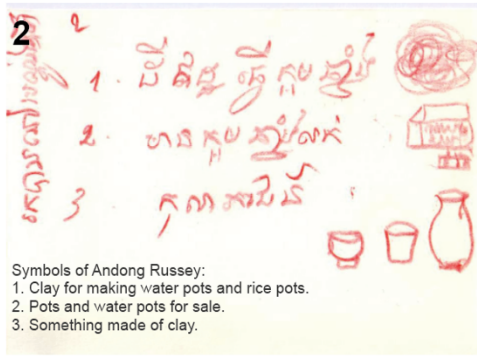 2
2
1. ដីឥដ្ឋ ធ្វើ ក្អម ឆ្នាំង
2. មាន ក្អម ឆ្នាំងលក់
3
Symbols of Andong Russey:
1. Clay for making water pots and rice pots.
2. Pots and water pots for sale.
3. Something made of clay.